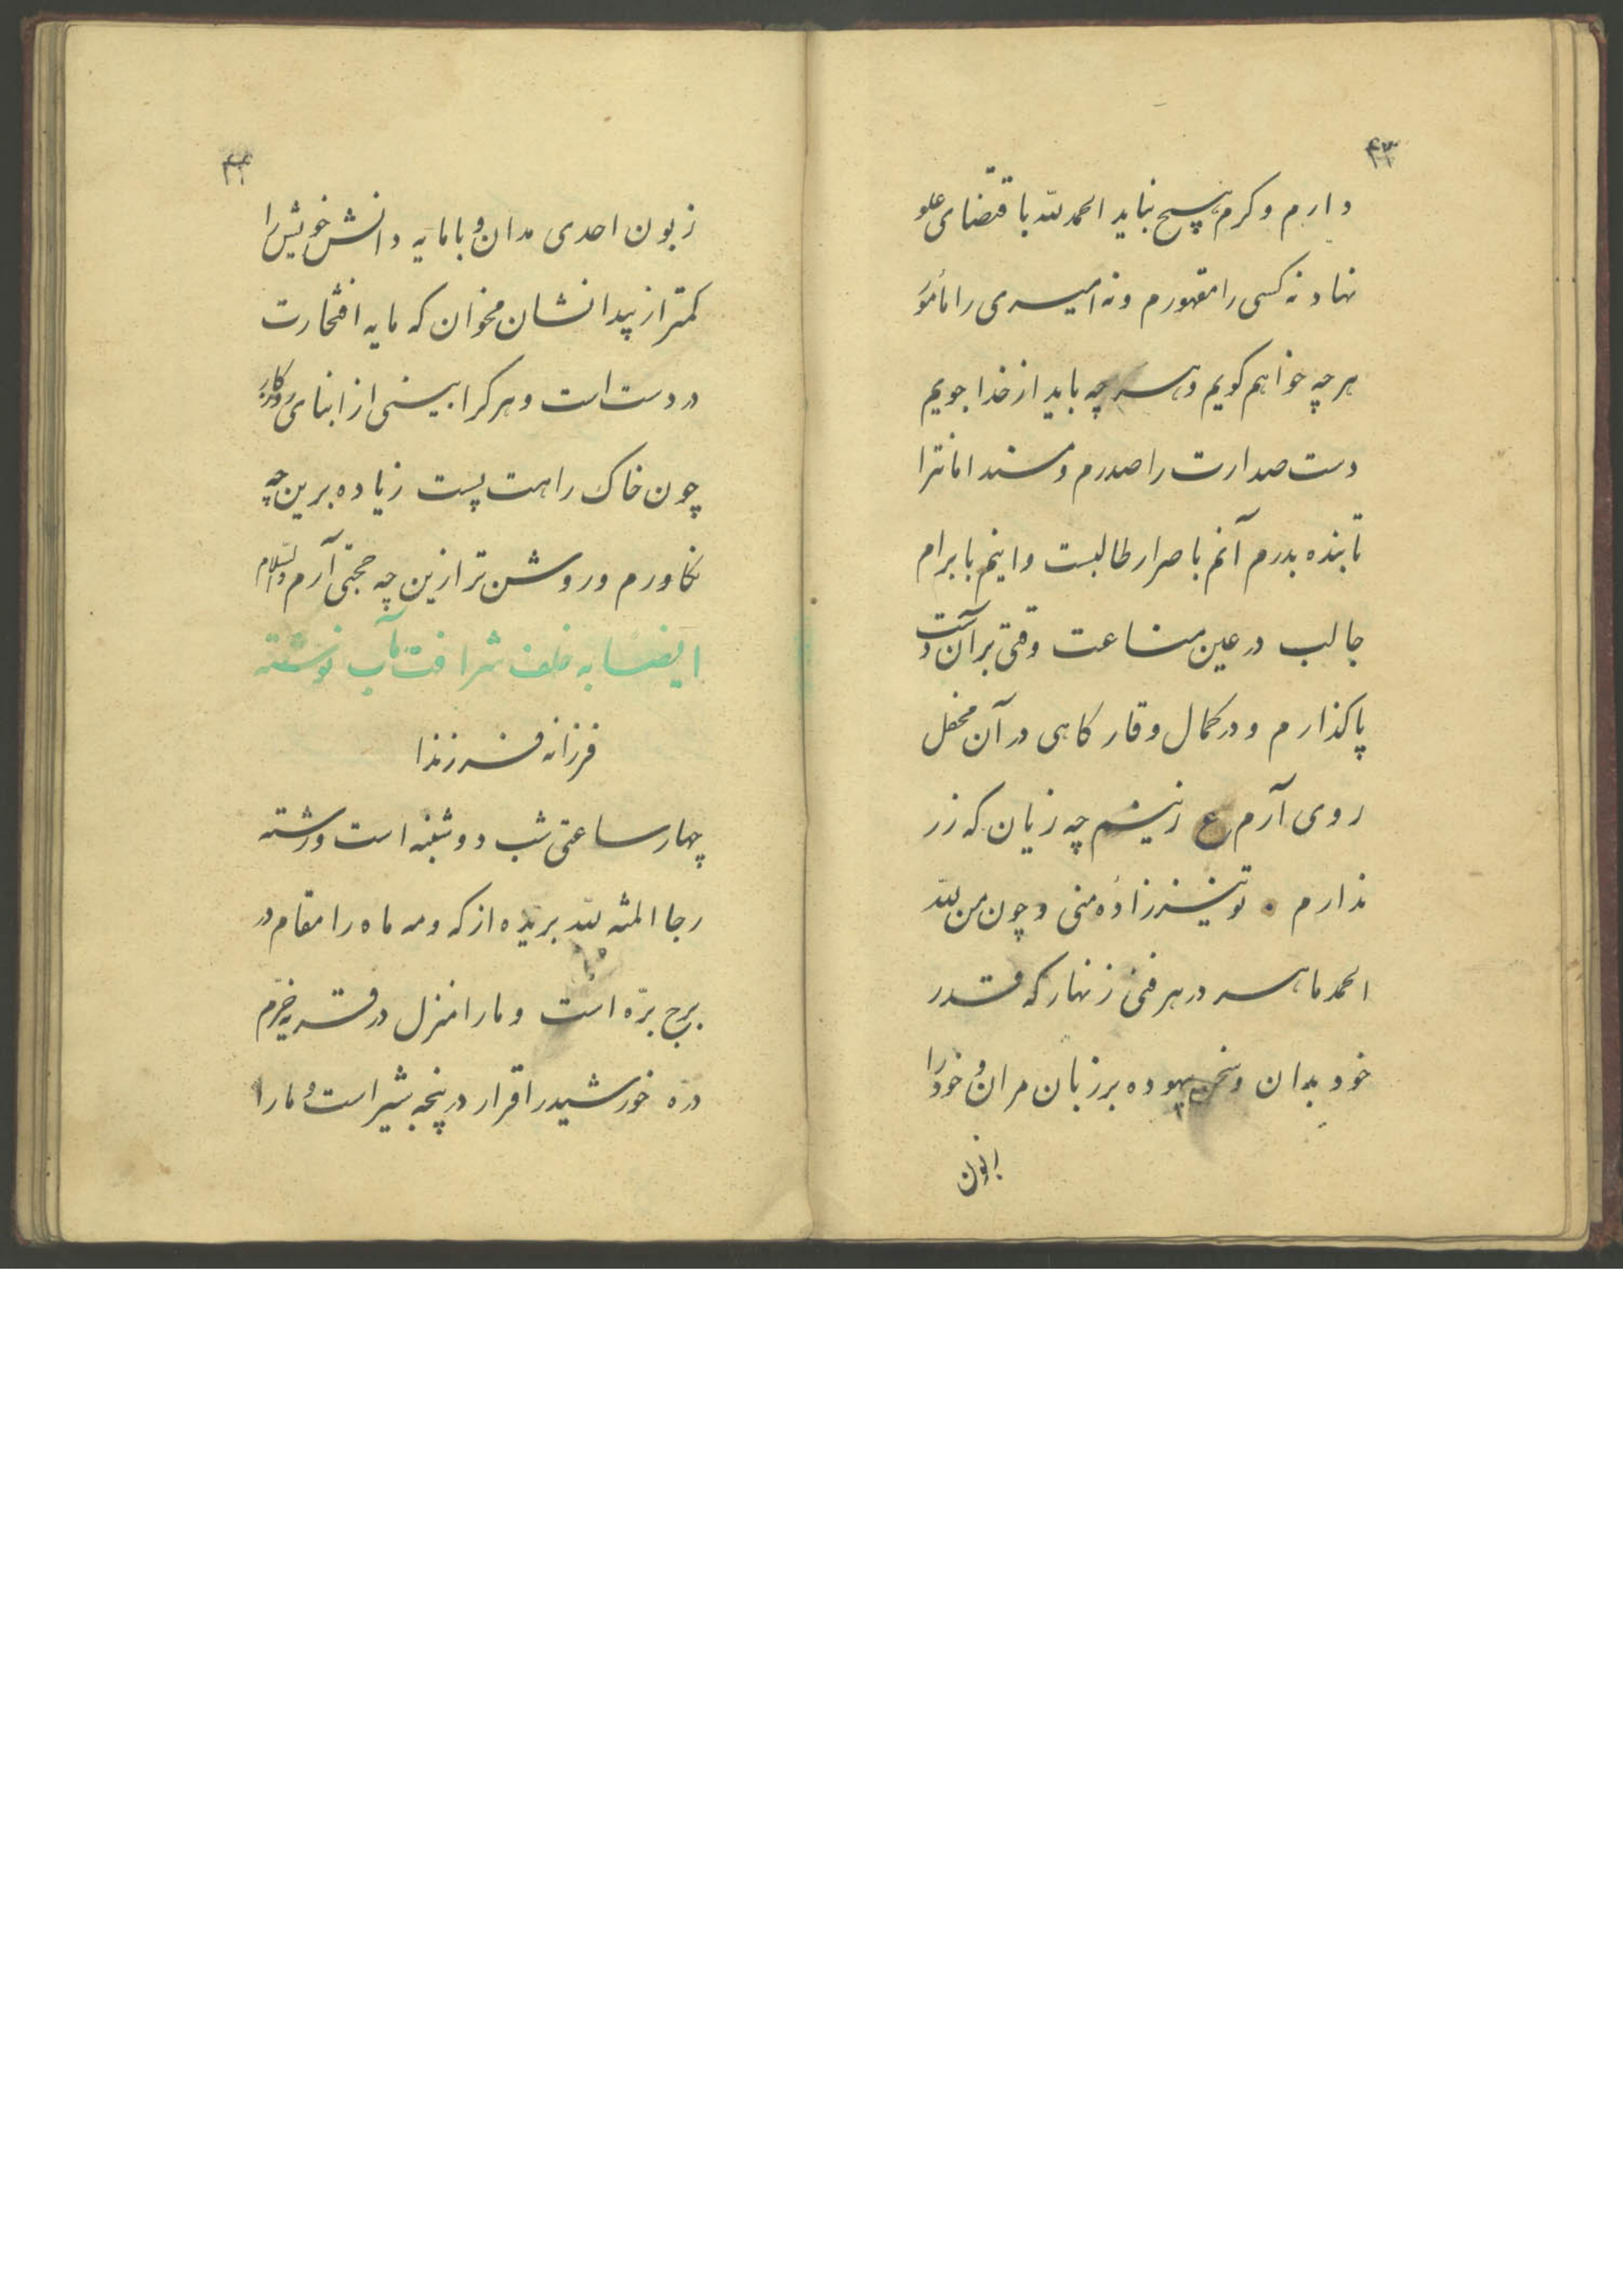 ۴۳
دارم و کرم بسیج نباید الحمد لله باقتضای علو
نهاد نه کسی را مقهورم و نه امیری را مأمور
هر چه خواهم گویم و هر چه باید از خدا جویم
دست صدارت را صدرم و مسند امانت را
تابنده بدرم آنم باصرار طالبست و اینم بابرام
جالب در عین مناعت وقتی بر آن دست
پا گذارم و در کمال وقار گاهی در آن محفل
روی آرم ع زینم چه زیان که زر
ندارم تو نیز زاده منی و چون من لله
الحمد ماهر در هر فنی زنهار که قدر
خود بدان و سخن بیهوده بر زبان مران و خود را
۴۴
زبون احدی مدان و با مایه دانش خویش را
کمتر از بیدانشان مخوان که مایه افتخارت
در دست است و هر که را بینی از ابنای روزگار
چون خاک راهت پست زیاده برین چه
نگاورم و روشن تر ازین چه حجتی آرم والسلام
ایضا به خلف شرافت مآب نوشته
فرزانه فرزندا
چهار ساعتی شب دوشنبه است و رشته
رجا المنه لله بریده از که و مه ماه را مقام در
برج بره است و ما را منزل در قریه خرم
دره خورشید را قرار در پنجه شیر است و ما را